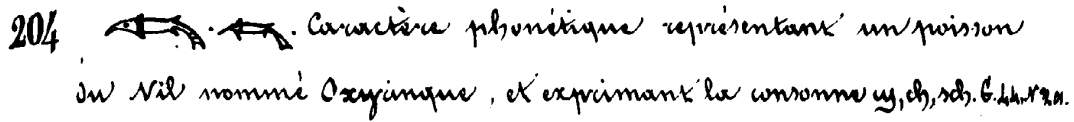 204 . . Caractère phonétique représentant un poisson
du Nil nommé Oxyrinque, et exprimant la consonne ϣ, ch, sch. G. 44. N°